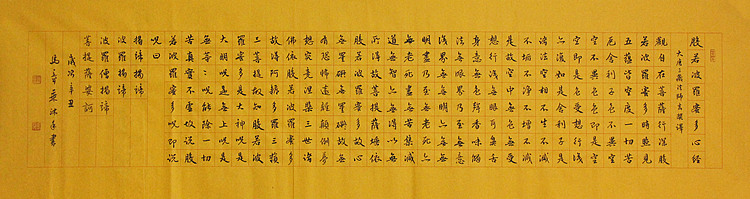 般若波羅蜜多心經
大唐三藏法師玄奘譯
觀自在菩薩行深般
若波羅蜜多時照見
五蘊皆空度一切苦
厄舍利子色不異空
空不異色色即是空
空即是色受想行識
亦復如是舍利子是
諸法空相不生不滅
不垢不淨不增不減
是故空中無色無受
想行識無眼耳鼻舌
身意無色聲香味觸
法無眼界乃至無意
識界無無明亦無無
明盡乃至無老死亦
無老死盡無苦集滅
道無智亦無得以無
所得故菩提薩埵依
般若波羅蜜多故心
無罣礙無罣礙故無
有恐怖遠離顛倒夢
想究竟涅槃三世諸
佛依般若波羅蜜多
故得阿耨多羅三藐
三菩提故知般若波
羅蜜多是大神呪是
大明呪是無上呪是
無等〻呪能除一切
苦真實不虛故說般
若波羅蜜多呪即說
呪曰
揭諦揭諦
波羅揭諦
波羅僧揭諦
菩提薩婆訶
歲次辛丑
沐手書